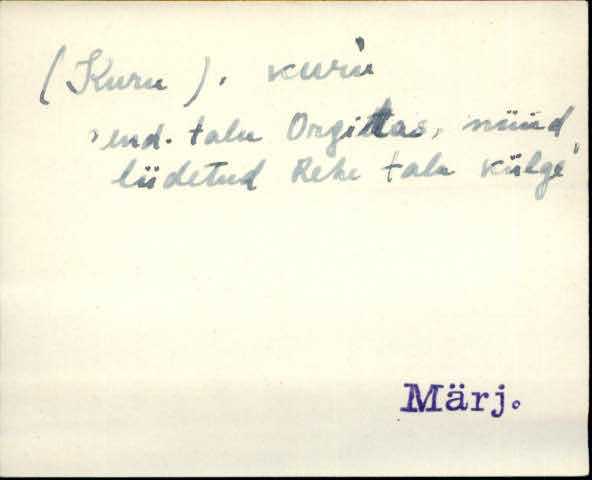 (Kuru). kuru
'end. talu Orgittas, nüüd
liidetud Rehe talu külge'
Märj.